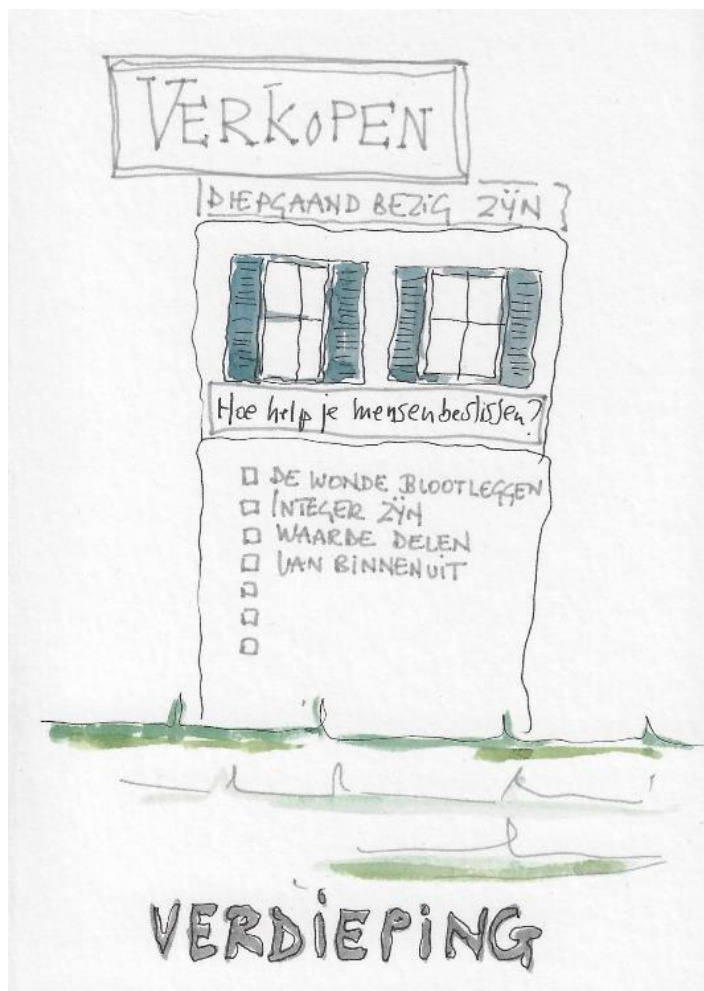 VERKOPEN
DIEPGAAND BEZIG ZIJN
Hoe help je mensen beslissen?
DE WONDE BLOOTLEGGEN
INTEGER ZIJN
WAARDE DELEN
VAN BINNENUIT
VERDIEPING